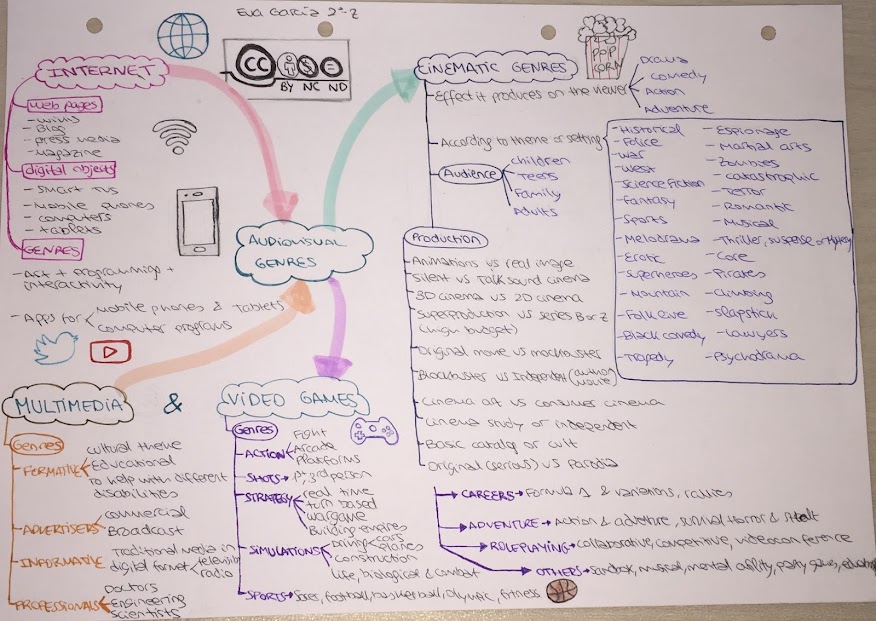 Eva García 2º-Z
CC
BY NC ND
INTERNET
web pages
- wikis
- Blog
- press media
- Magazine
digital objects
- Smart TVs
- Mobile phones
- computers
- tablets
GENRES
- Art + programming +
interactivity
- Apps for
Mobile phones & tablets
computer programs
AUDIOVISUAL
GENRES
CINEMATIC GENRES
POP
CORN
- Effect it produces on the viewer
Drama
Comedy
Action
Adventure
- According to theme or setting
- Historical
- Police
- war
- West
- Science fiction
- Fantasy
- Sports
- Melodrama
- Erotic
- Superheroes
- Mountain
- Black comedy
- Tragedy
- Espionage
- Martial arts
- Zombies
- catastrophic
- Terror
- Romantic
- Musical
- Thriller, suspense or Mystery
- Core
- Pirates
- Climbing
- Slapstick
- Lawyers
- Psychodrama
Audience
children
Teens
Family
Adults
Production
- Animations vs real image
- Silent vs Talk sound cinema
- 3D cinema vs 2D cinema
- Superproduction vs series B or Z
(high budget)
- Original movie vs mockbuster
- Blockbuster vs Independent (author
movie)
- Cinema art vs consumes cinema
- cinema study or independent
- Basic catalog or cult
- Original (serious) vs Parodia
MULTIMEDIA
&
VIDEO GAMES
Genres
- FORMATIVE
cultural theme
Educational
To help with different
disabilities
- ADVERTISERS
commercial
Broadcast
- INFORMATIVE
Traditional media in
digital format
television
radio
- PROFESSIONALS
Doctors
Engineering
scientists
Genres
- ACTION
Fight
Arcade
Platforms
- SHOTS → 1ª, 3rd person
- STRATEGY
real time
turn based
wargame
Building empires
- SIMULATIONS
Driving
cars
planes
construction
life, biological & combat
- SPORTS → football, basketball, olympic, fitness
→ CAREERS → Formula 1 & variations, rallies
→ ADVENTURE → Action & adventure, survival Horror &
→ ROLEPLAYING → collaborative, competitive, videoconference
→ OTHERS → Sandbox, musical, mental agility, party games,